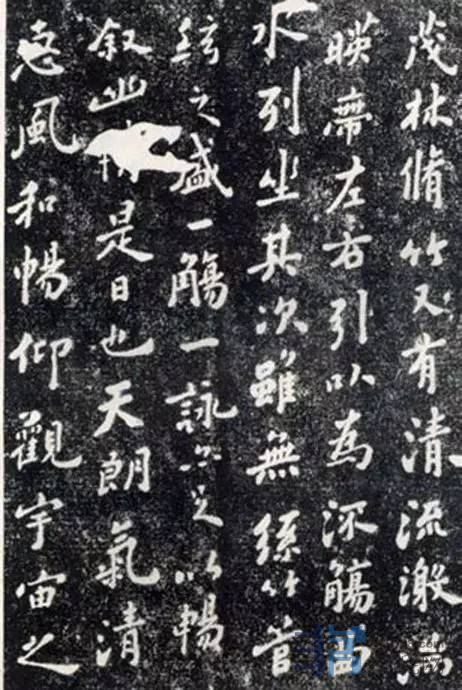 茂林脩竹又有清流激湍
暎帶左右引以為流觴曲
水列坐其次雖無絲竹管
絃之盛一觴一詠亦足以暢
叙幽情是日也天朗氣清
惠風和暢仰觀宇宙之